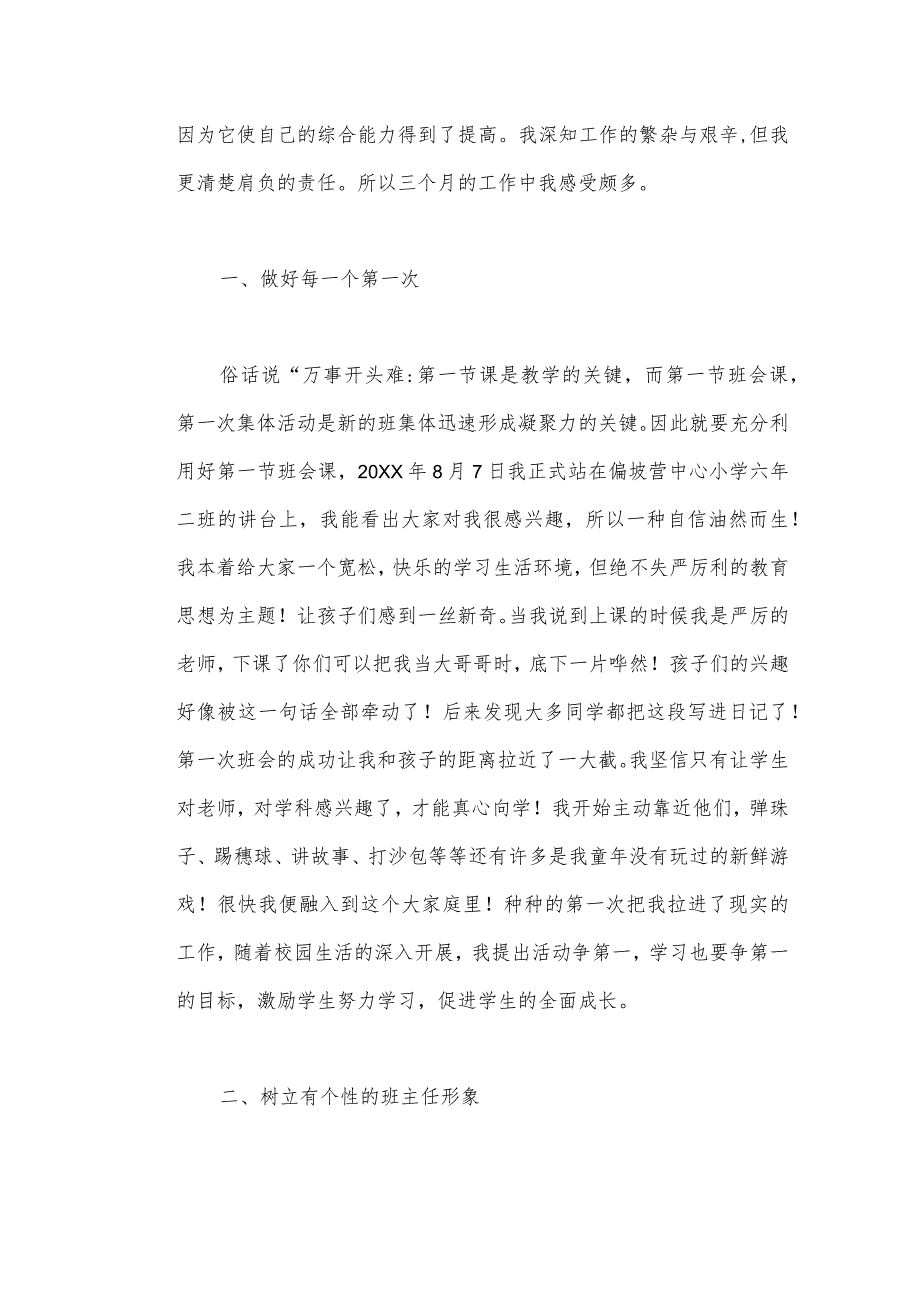 因为它使自己的综合能力得到了提高。我深知工作的繁杂与艰辛,但我
更清楚肩负的责任。所以三个月的工作中我感受颇多。
一、做好每一个第一次
俗话说“万事开头难:第一节课是教学的关键，而第一节班会课，
第一次集体活动是新的班集体迅速形成凝聚力的关键。因此就要充分利
用好第一节班会课，20XX年8月7日我正式站在偏坡营中心小学六年
二班的讲台上，我能看出大家对我很感兴趣，所以一种自信油然而生！
我本着给大家一个宽松，快乐的学习生活环境，但绝不失严厉利的教育
思想为主题！让孩子们感到一丝新奇。当我说到上课的时候我是严厉的
老师，下课了你们可以把我当大哥哥时，底下一片哗然！孩子们的兴趣
好像被这一句话全部牵动了！后来发现大多同学都把这段写进日记了！
第一次班会的成功让我和孩子的距离拉近了一大截。我坚信只有让学生
对老师，对学科感兴趣了，才能真心向学！我开始主动靠近他们，弹珠
子、踢穗球、讲故事、打沙包等等还有许多是我童年没有玩过的新鲜游
戏！很快我便融入到这个大家庭里！种种的第一次把我拉进了现实的
工作，随着校园生活的深入开展，我提出活动争第一，学习也要争第一
的目标，激励学生努力学习，促进学生的全面成长。
二、树立有个性的班主任形象